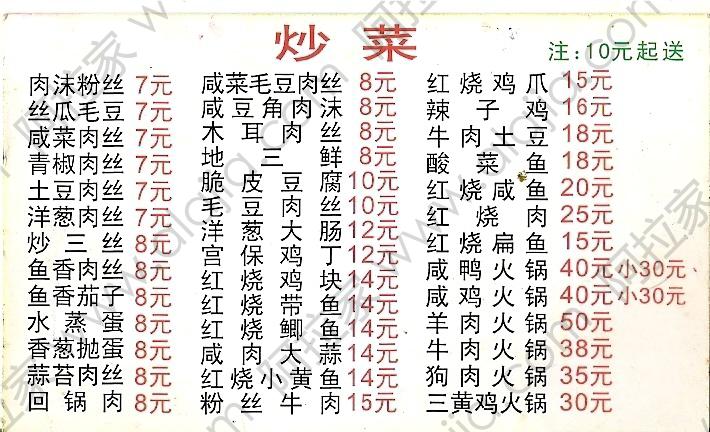 炒菜
注:10元起送
肉沫粉丝 7元
丝瓜毛豆 7元
咸菜肉丝 7元
青椒肉丝 7元
土豆肉丝 7元
洋葱肉丝 7元
炒三丝 8元
鱼香肉丝 8元
鱼香茄子 8元
水蒸蛋 8元
香葱抛蛋 8元
蒜苔肉丝 8元
回锅肉 8元
咸菜毛豆肉丝 8元
咸豆角肉沫 8元
木耳肉丝 8元
地三鲜 8元
脆皮豆腐 10元
毛豆肉丝 10元
洋葱大肠 12元
宫保鸡丁 12元
红烧鸡块 14元
红烧带鱼 14元
红烧鲫鱼 14元
咸肉大蒜 14元
红烧小黄鱼 14元
粉丝牛肉 15元
红烧鸡爪 15元
辣子鸡 16元
牛肉土豆 18元
酸菜鱼 18元
红烧咸鱼 20元
红烧肉 25元
红烧扁鱼 15元
咸鸭火锅 40元 小30元
咸鸡火锅 40元 小30元
羊肉火锅 50元
牛肉火锅 38元
狗肉火锅 35元
三黄鸡火锅 30元
阿拉家